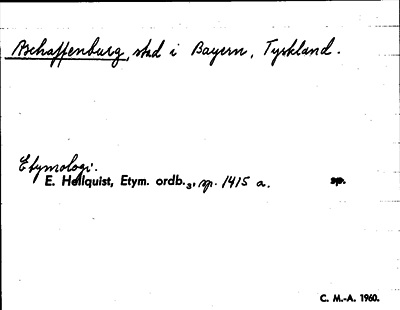 Aschaffenburg, stad i Bayern, Tyskland.
Etymologi.
E. Hellquist, Etym. ordb.₃, sp. 1415 a. sp.
C. M.-A. 1960.